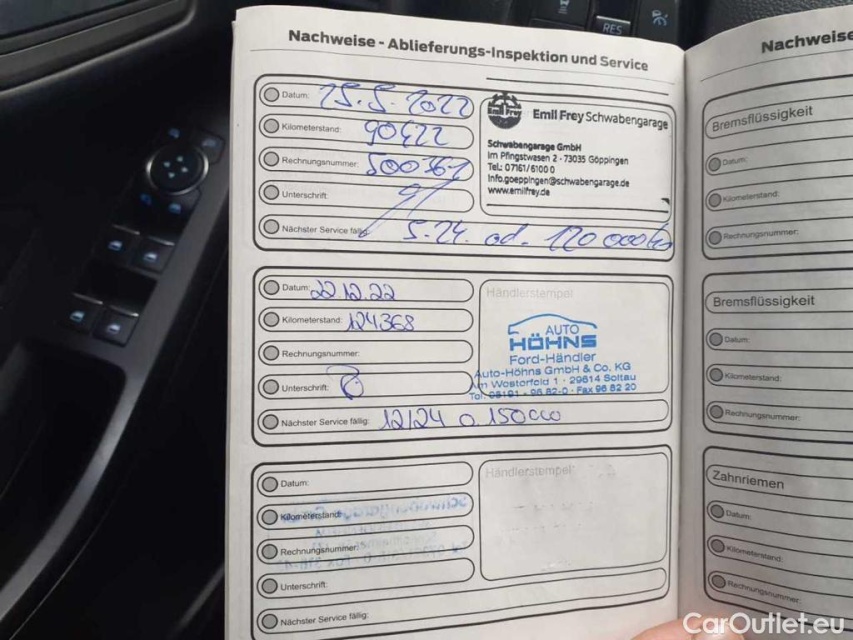 RES
Nachweise - Ablieferungs-Inspektion und Service
Datum: 25.5.2022
Kilometerstand: 90422
Rechnungsnummer: 500361
Unterschrift:
Nächster Service fällig: 5.24. od. 120 000 km
Emil Frey
Emil Frey Schwabengarage
Schwabengarage GmbH
Im Pfingstwasen 2 - 73035 Göppingen
Tel.: 07161/6100 0
Info.goeppingen@schwabengarage.de
www.emilfrey.de
Datum: 22.12.22
Kilometerstand: 124368
Rechnungsnummer:
Unterschrift:
Nächster Service fällig: 12/24 o 150000
Händlerstempel
AUTO
HÖHNS
Ford-Händler
Auto-Höhns GmbH & Co. KG
Am Wostorfeld 1 · 29614 Soltau
Tel. 05191 - 96 82-0 · Fax 96 82 20
Datum:
Kilometerstand:
Rechnungsnummer:
Unterschrift:
Nächster Service fällig:
Händlerstempel:
Nachweise
Bremsflüssigkeit
Datum:
Kilometerstand:
Rechnungsnummer:
Bremsflüssigkeit
Datum:
Kilometerstand:
Rechnungsnummer:
Zahnriemen
Datum:
Kilometerstand:
Rechnungsnummer:
CarOutlet.eu